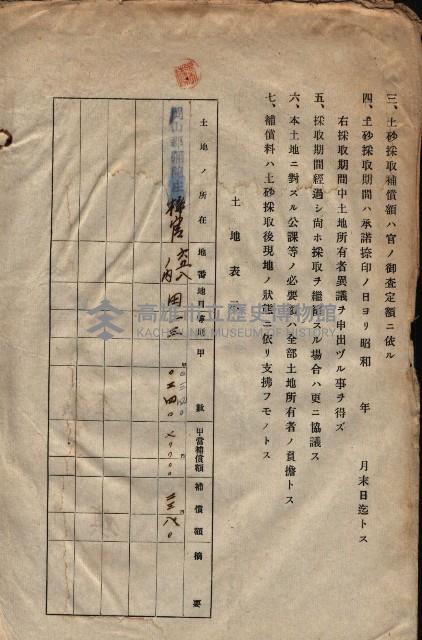 三、土砂採取補償額ハ官ノ御査定額ニ依ル
四、土砂採取期間ハ承諾捺印ノ日ヨリ昭和　年　月末日迄トス
右採取期間中土地所有者異議ヲ申出ヅル事ヲ得ズ
五、採取期間經過シ尚ホ採取ヲ繼續スル場合ハ更ニ協議ス
六、本土地ニ對スル公課等ノ必要額ハ全部土地所有者ノ負擔トス
七、補償料ハ土砂採取後現地ノ狀態ニ依リ支拂フモノトス
土地表示
土地ノ所在
地番
地目
甲數
甲當補償額
補償額
摘要
田
高雄市立歷史博物館
KAOHSIUNG MUSEUM OF HISTORY